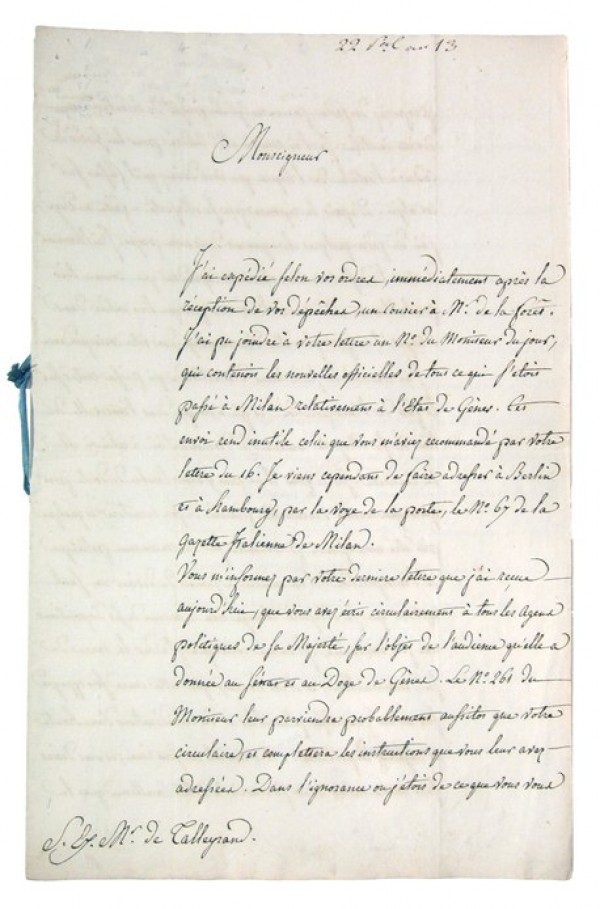 22 P.al an 13
Monseigneur
J'ai expédié selon vos ordres, immédiatement après la
réception de vos dépêches, un courier à Mr. de la forêt.
J'ai pu joindre à votre lettre un No. du Moniteur du jour,
qui contenoit les nouvelles officielles de tout ce qui s'etoit
passé à Milan relativement à l'Etat de Gênes. Cet
envoi rend inutile celui que vous m'aviez recommandé par votre
lettre du 16. Je viens cependant de faire adresser à Berlin
et à hambourg, par la voye de la poste, le No. 67 de la
gazette Italienne de Milan.
Vous m'informez par votre derniere lettre que j'ai recue
aujourd'hui, que vous avez écrit circulairement à tous les agens
politiques de sa Majesté, sur l'objet de l'audience qu'elle a
donnée au Sénat et au Doge de Gênes. Le No. 261 du
Moniteur leur parviendra probablement aussitot que votre
circulaire, et complettera les instructions que vous leur avez
adressées. Dans l'ignorance ou j'étois de ce que vous vous
S. E. Mr. de Talleyrand.